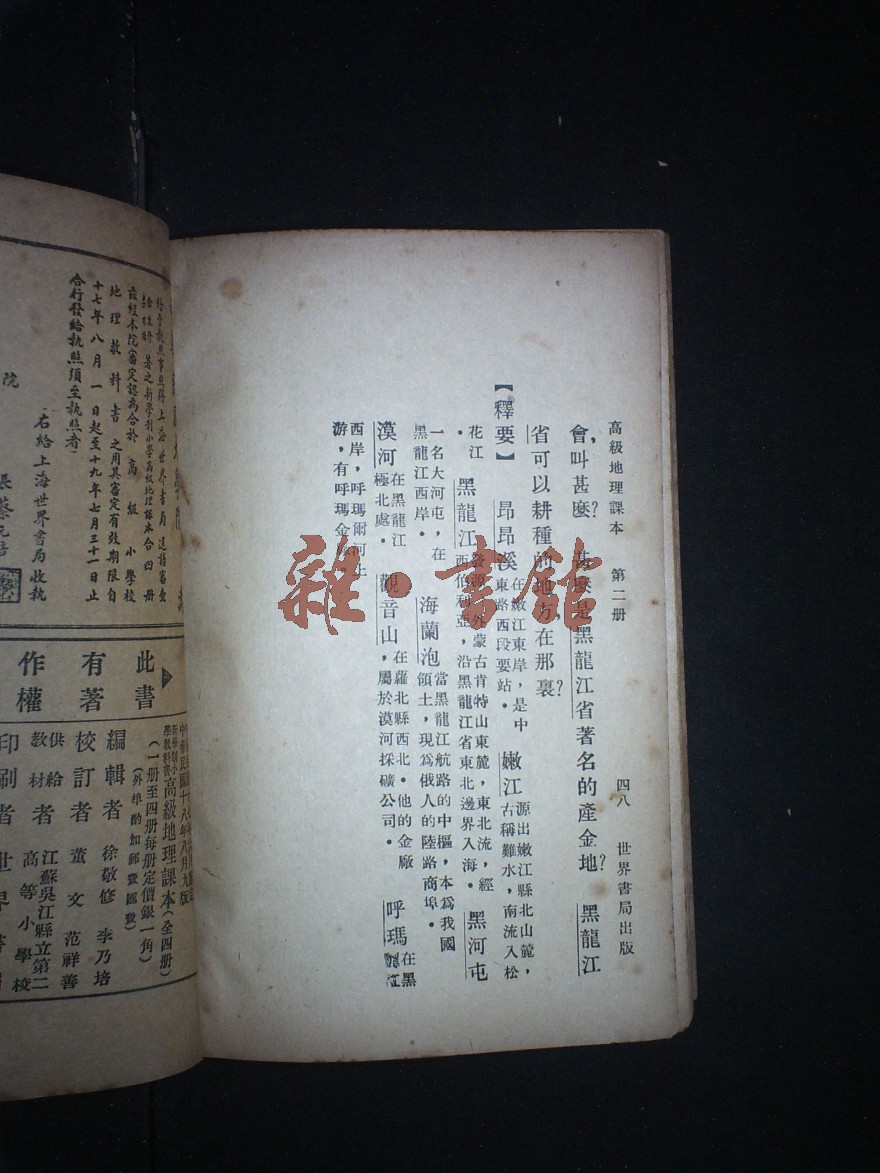 高級地理課本 第二册 四八 世界書局出版
會,叫甚麽? 甚麽是黑龍江省著名的產金地? 黑龍江
省可以耕種的地方,在那裏?
【釋要】 昂昂溪 在嫩江東岸,是中
東路西段要站。 嫩江 源出嫩江縣北山麓,
古稱難水,南流入松
花江。 黑龍江 發源外蒙古肯特山東麓,東北流,經
西伯利亞,沿黑龍江省東北邊界入海。 黑河屯
一名大河屯,在
黑龍江西岸。 海蘭泡 當黑龍江航路的中樞,本爲我國
領土,現爲俄人的陸路商埠。
漠河 在黑龍江
極北處。 觀音山 在蘿北縣西北。他的金廠
,屬於漠河採礦公司。 呼瑪 在黑
龍江
西岸,呼瑪爾河上
游,有呼瑪金
雜·書館
著之新學制小學高級地理課本合四册
茲經本院審定認爲合於高級小學校
地理教科書之用其審定有效期限自
十七年八月一日起至十九年七月三十一日止
合行發給執照須至執照者
右給上海世界書局收執
院
此書
有著
作權
中華民國十八年八月九版
新學制小
學教科書 高級地理課本(全四册)
(一册至四册每册定價銀一角)
(外埠酌加郵費匯費)
編輯者 徐敬修 李乃培
校訂者 董文 范祥善
供給
教材者 江蘇吳江縣立第二
高等小學校
印刷者 世界書局